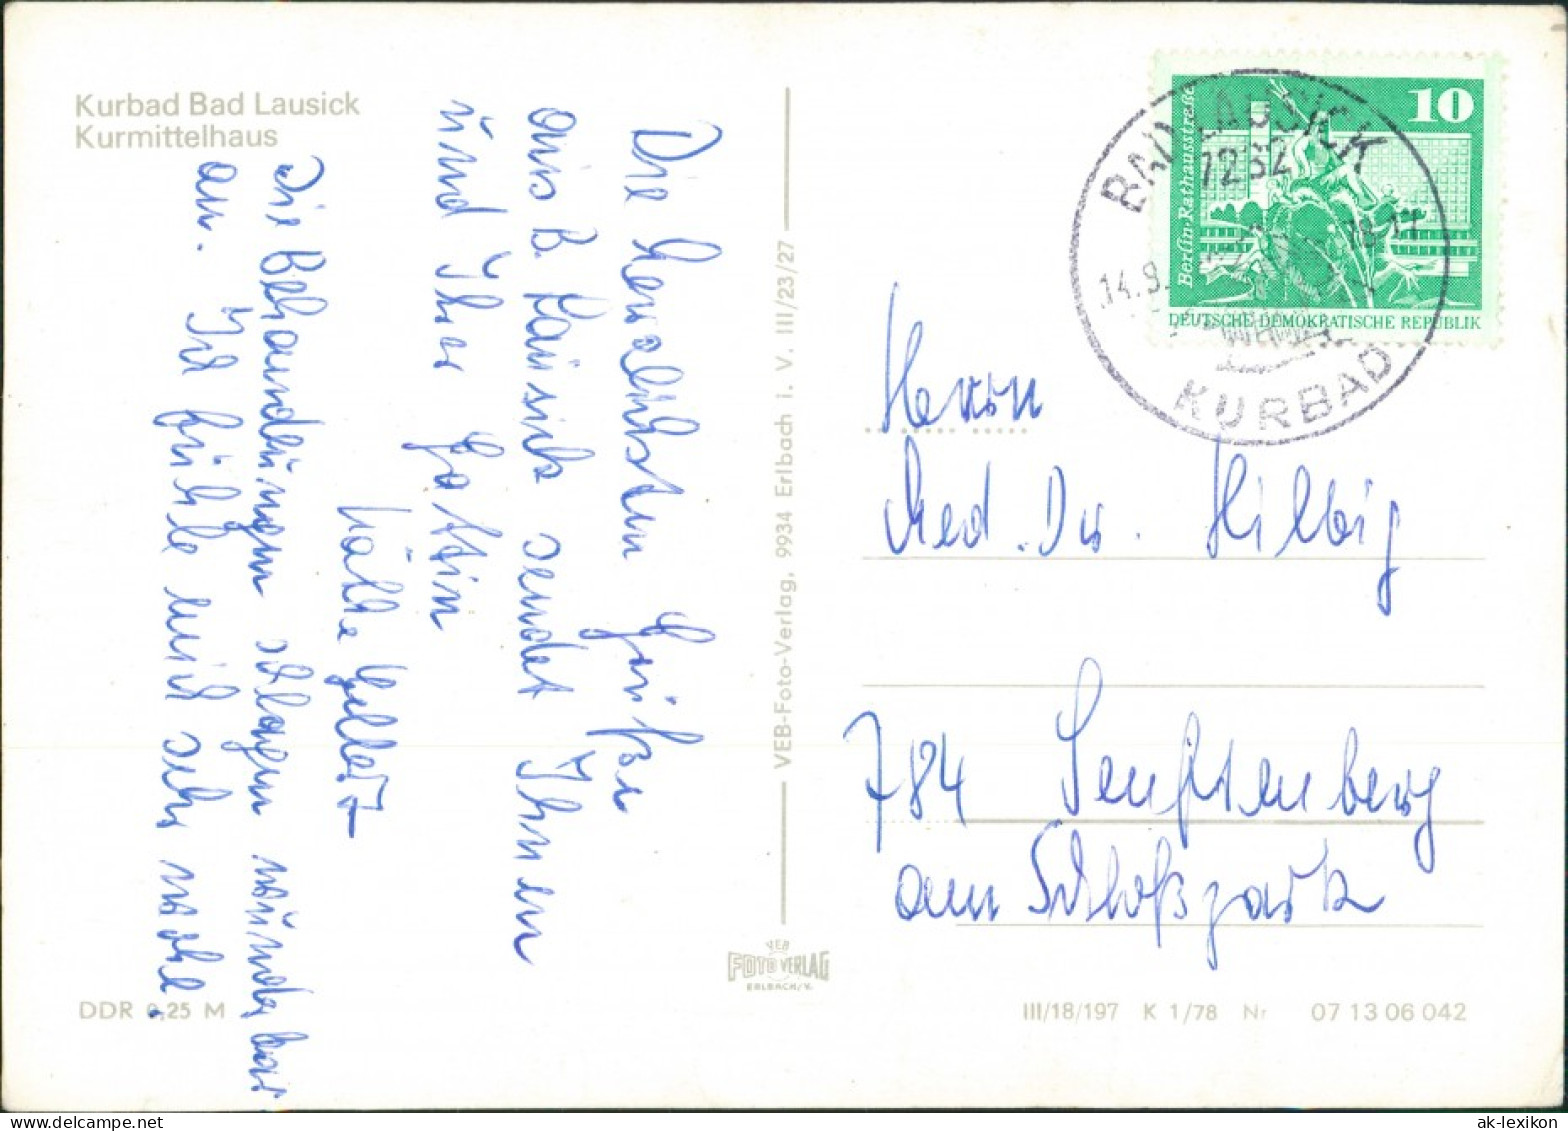 Kurbad Bad Lausick
Kurmittelhaus
Die herzlichsten Grüße
aus B. Lausick sendet Ihnen
und Ihrer Gattin
Käthe
Die Behandlungen schlagen wunderbar
an. Ich fühle mich sehr wohl.
VEB-Foto-Verlag, 9934 Erlbach i. V. III/23/27
VEB
FOTO VERLAG
ERLBACH/V.
DDR 0,25 M
BAD LAUSICK
7282
14.9.
18-17
KURBAD
10
Berlin·Rathausstraße
DEUTSCHE DEMOKRATISCHE REPUBLIK
Herrn
Med. Dr. Hilbig
784 Senftenberg
am Schloßpark
III/18/197 K 1/78 Nr 07 13 06 042
ak-lexikon